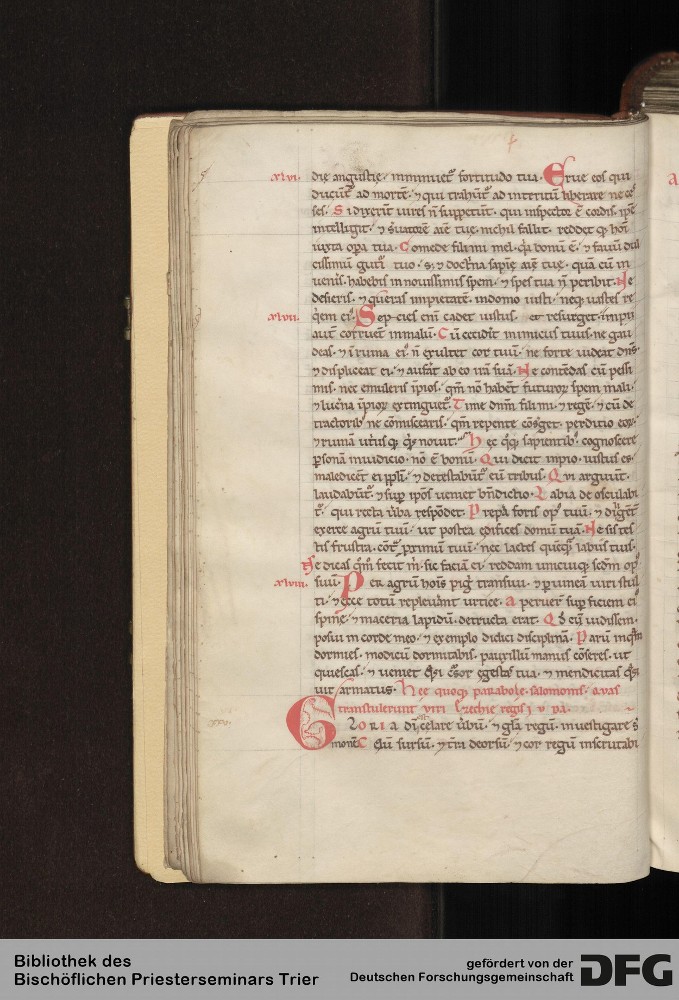 xlvi. dię angustię · inminuet᷑ fortitudo tua · Erue eos qui
ducunt᷑ ad mortē · ⁊ qui trahunt᷑ ad interitū liberare ne ces
ses · Si dixerit uires n̄ suppetūt · qui inspector ē cordis · ip̄e
intelligit · ⁊ seruatorē aīe tuę nichil fallit · reddet q̨ hoī
iuxta oꝑa tua · Comede fili mi mel · q̇a bonū ē · ⁊ fauū dul
cissimū gutt᷑i tuo · sic ⁊ doctͥna sapīę aīe tuę · quā cū in
uenis · habebis in nouissimis spem · ⁊ spes tua n̄ peribit · Ne
desieris · ⁊ queras impietatē · in domo iusti · neq; uastes re
xlvii. quiem ei᷒ · Sepcies enī cadet iustus · et resurget · impii
aut̄ corruent in malū · Cū ceciderit inimicus tuus · ne gau
deas · ⁊ in ruina ei᷒ n̄ exultet cor tuū · ne forte uideat dn̄s ·
⁊ displiceat ei · ⁊ auferat ab eo irā suā · Ne contendas cū pessi
mis · nec emuleris īpios · qm̄ nō habent futurorum spem mali ·
⁊ lucerna īpiorum extinguet᷑ · Time dn̄m fili mi · ⁊ regē · ⁊ cū de
tractorib᷒ ne cōmiscearis · qm̄ repente cōsurget perditio eorum ·
⁊ ruinā utriusq; quis nouit · Hęc quoq; sapientib᷒ · cognoscere
personā in iudicio · nō ē bonū · Qui dicit inpio · iustus es ·
maledicent ei ppłi · ⁊ detestabunt᷑ eū tribus · Qui arguunt ·
laudabunt᷑ · ⁊ sup ip̄os ueniet bn̄dictio · Labia deosculabi
t᷑ · qui recta uerba respondet · Prepara foris op᷒ tuū · ⁊ diligent᷑
exerce agrū tuū · ut postea edifices domū tuā · Ne sis tes
tis frustra · contra proximū tuū · nec lactes quēquā labiis tuis ·
Ne dicas quom̄ fecit m̄ · sic faciā ei · reddam unicuiq; scdm op᷒
xlviii. suū · Per agrum hoīs pigri transiui · ⁊ per uineā uiri stul
ti · ⁊ ecce totū repleuerant urtice · a peruerāt superficiem ei᷒
spinę · ⁊ maceria lapidū · destructa erat · Qd̄ cū uidissem ·
posui in corde meo · ⁊ exemplo didici disciplinā · Parū inquam
dormies · modicū dormitabis · pauxillū manus cōseres · ut
quiescas · ⁊ ueniet quasi cursor egestas tua · ⁊ mendicitas quasi
uir armatus · Hee quoq; parabole · salomonis · quas
transtulerunt uiri Ezechie regis iuda ·
GLORIA dī celare uerbū · ⁊ gł̄a regū · inuestigare s̄
monē · Celū sursū · ⁊ terra deorsū · ⁊ cor regū inscrutabi
Bibliothek des
Bischöflichen Priesterseminars Trier
gefördert von der
Deutschen Forschungsgemeinschaft
DFG